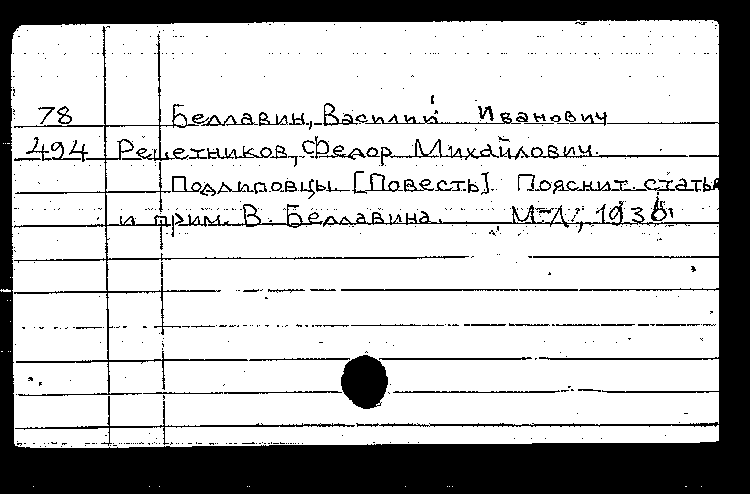 78 Беллавин, Василий Иванович
494 Решетников, Федор Михайлович.
Подлиповцы. [Повесть]. Пояснит. статья
и прим. В. Беллавина. М-Л., 1930.